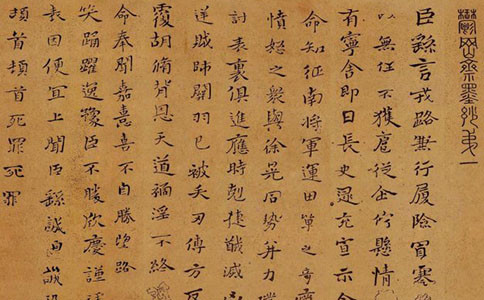 鬱岡齋墨妙第一
臣繇言戎路兼行履險冒寒
以無任不獲扈從企佇懸情
有寧舍即日長史逯充宣示令
命知征南將軍運田單之奇
憤怒之衆與徐晃同勢并力撲
討表裏俱進應時剋捷馘滅
逆賊帥關羽已被矢刃傅方反
覆胡脩背恩天道禍淫不終
命奉聞嘉憙喜不自勝望路
笑踊躍逸豫臣不勝欣慶謹拜
表因便宜上聞臣繇誠惶誠恐
頓首頓首死罪死罪